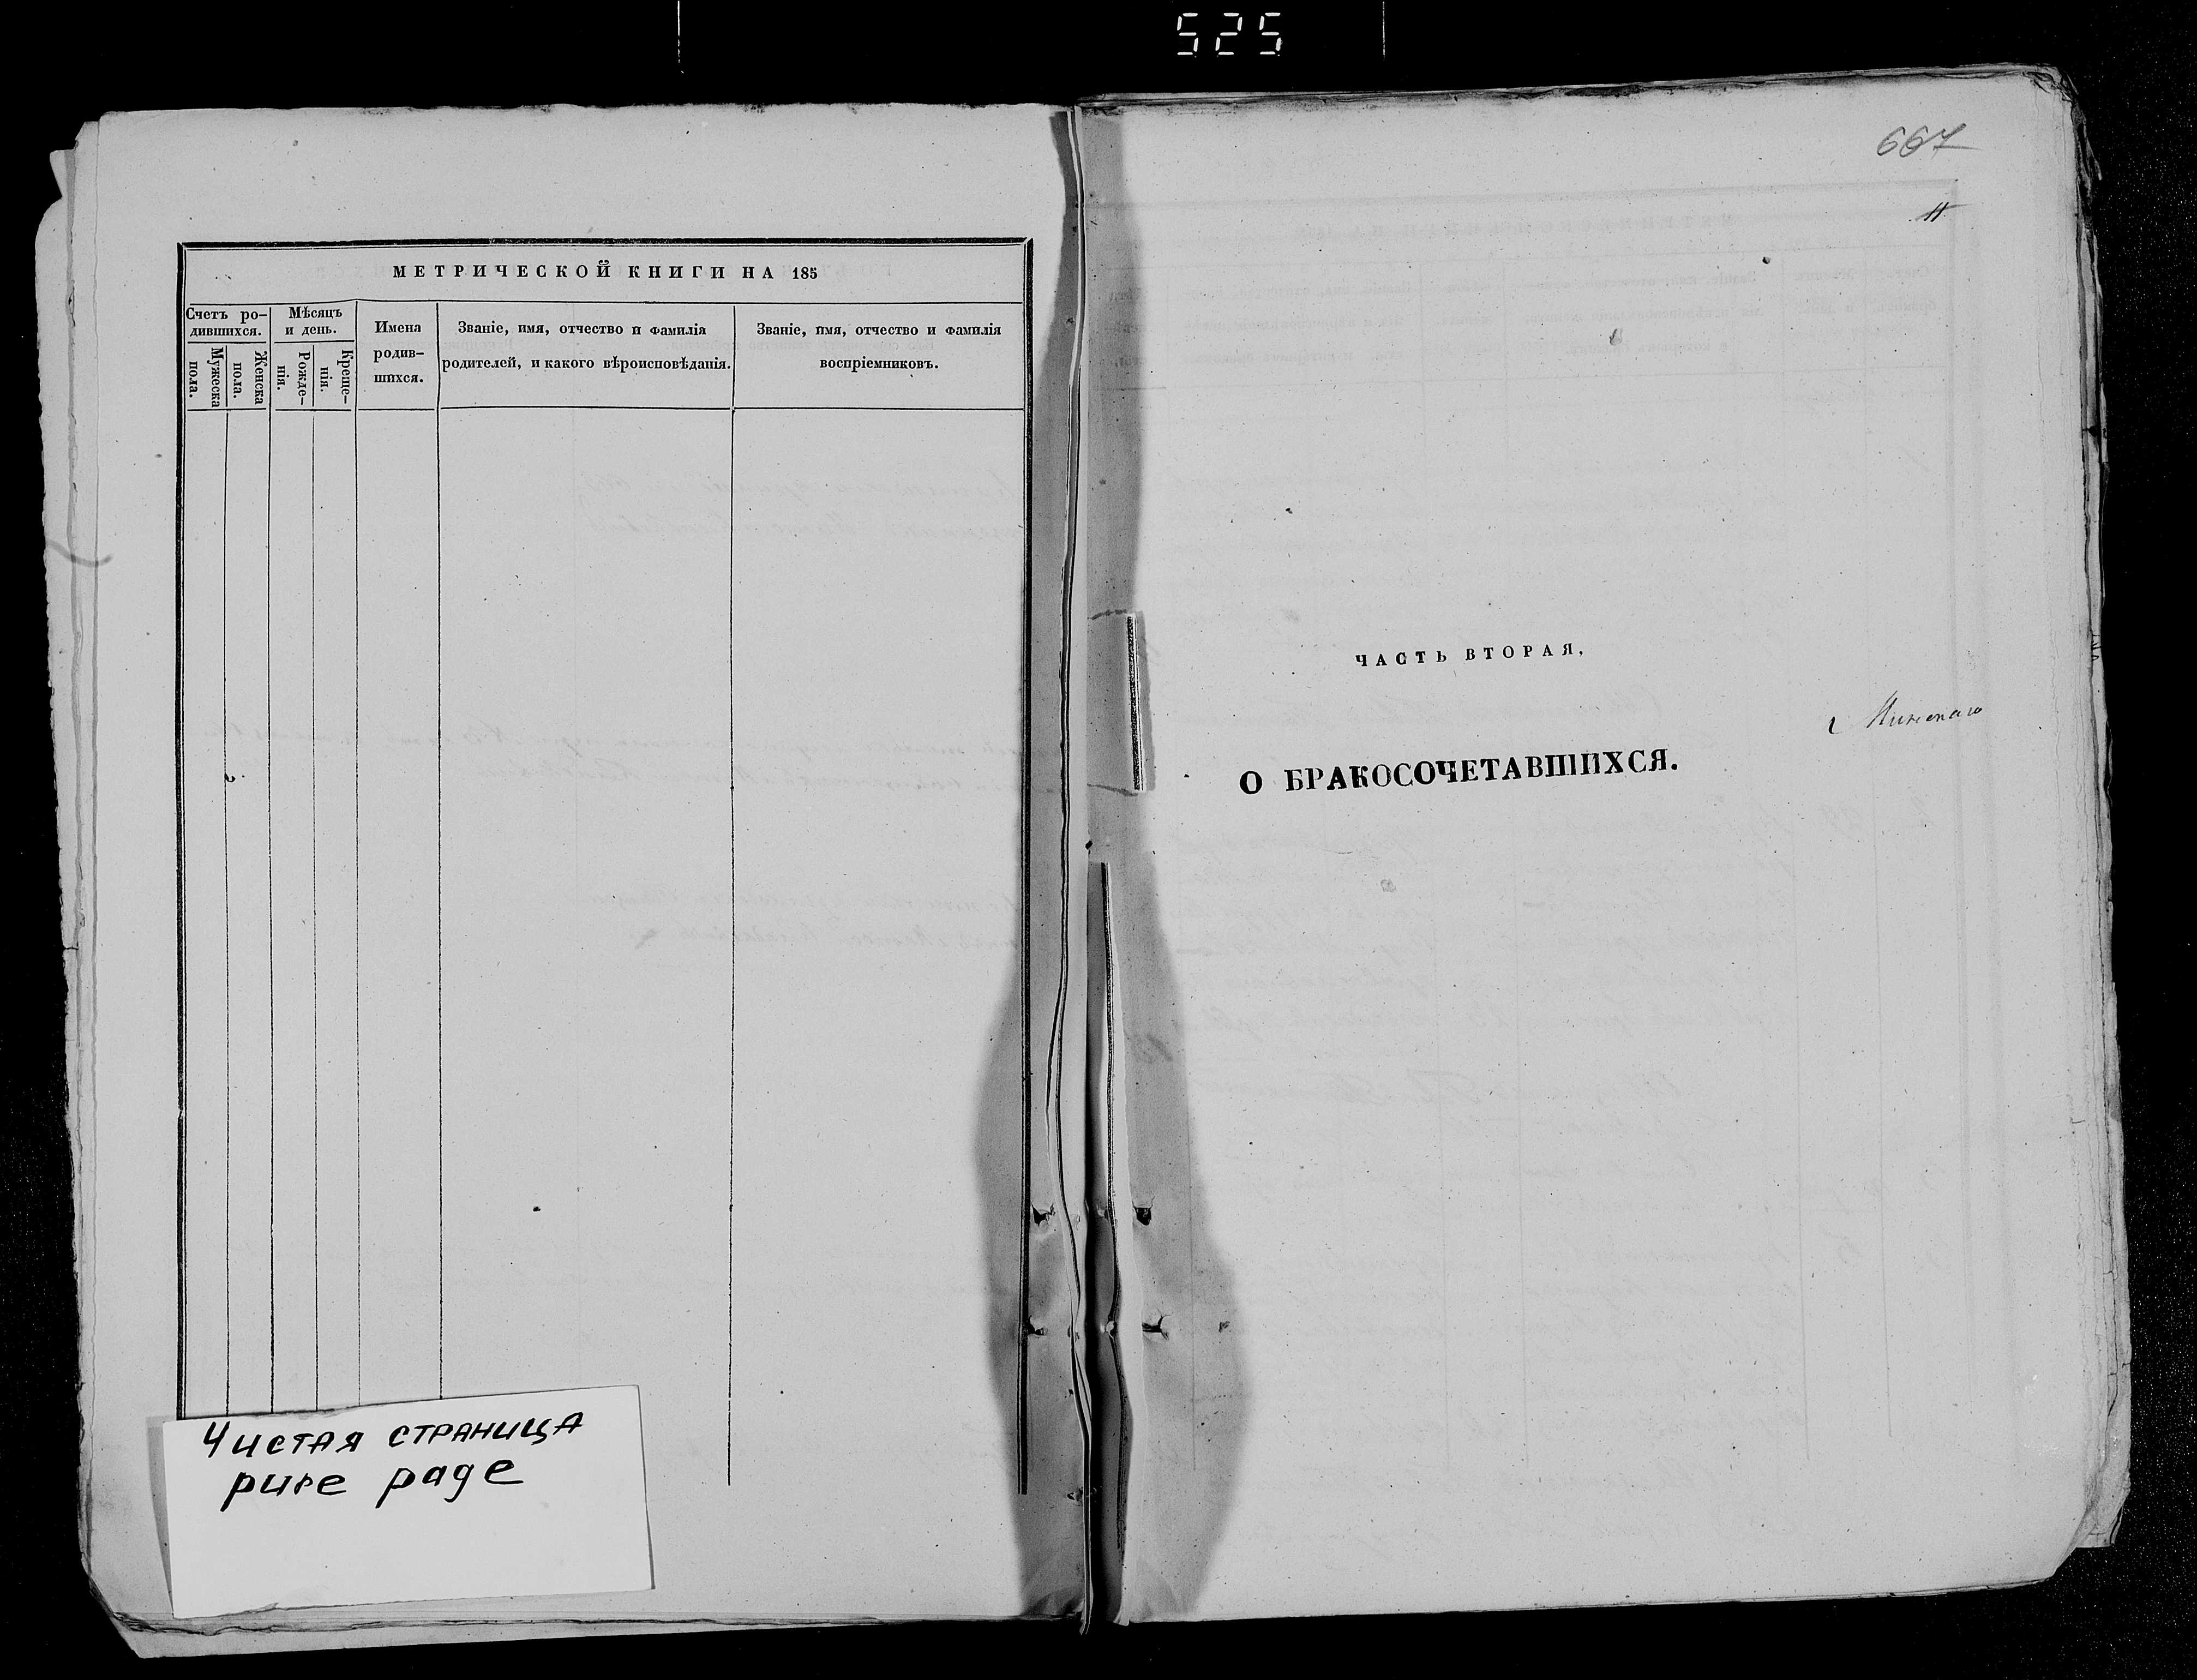 525
МЕТРИЧЕСКОЙ КНИГИ НА 185
Счетъ ро-
дившихся.
Мужеска
пола.
Женска
пола.
Мѣсяцъ
и день.
Рожде-
нія.
Креще-
нія.
Имена
родив-
шихся.
Званіе, имя, отчество и фамилія
родителей, и какого вѣроисповѣданія.
Званіе, имя, отчество и фамилія
воспріемниковъ.
Чистая страница
pure page
667
11
ЧАСТЬ ВТОРАЯ.
О БРАКОСОЧЕТАВШИХСЯ.